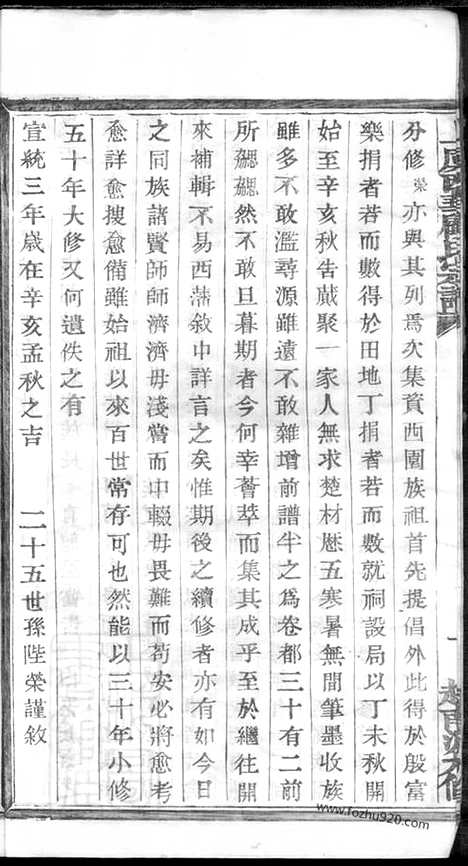 分修榮亦與其列爲次集資西園族祖首先提倡外此得於殷富
樂捐者若而數得於田地丁捐者若而數就祠設局以丁未秋開
始至辛亥秋告蕆聚一家人無求楚材歷五寒暑無間筆墨收族
雖多不敢濫尋源雖遠不敢雜增前譜半之爲卷都三十有二前
所勰勰然不敢旦暮期者今何幸薈萃而集其成乎至於繼往開
來補輯不易西蕅敘中詳言之矣惟期後之續修者亦有如今日
之同族諸賢師師濟濟毋淺嘗而中輟毋畏難而苟安必將愈考
愈詳愈搜愈備雖始祖以來百世常存可也然能以三十年小修
五十年大修又何遺佚之有
宣統三年歲在辛亥孟秋之吉 二十五世孫陛榮謹敘
www.fozhu920.com